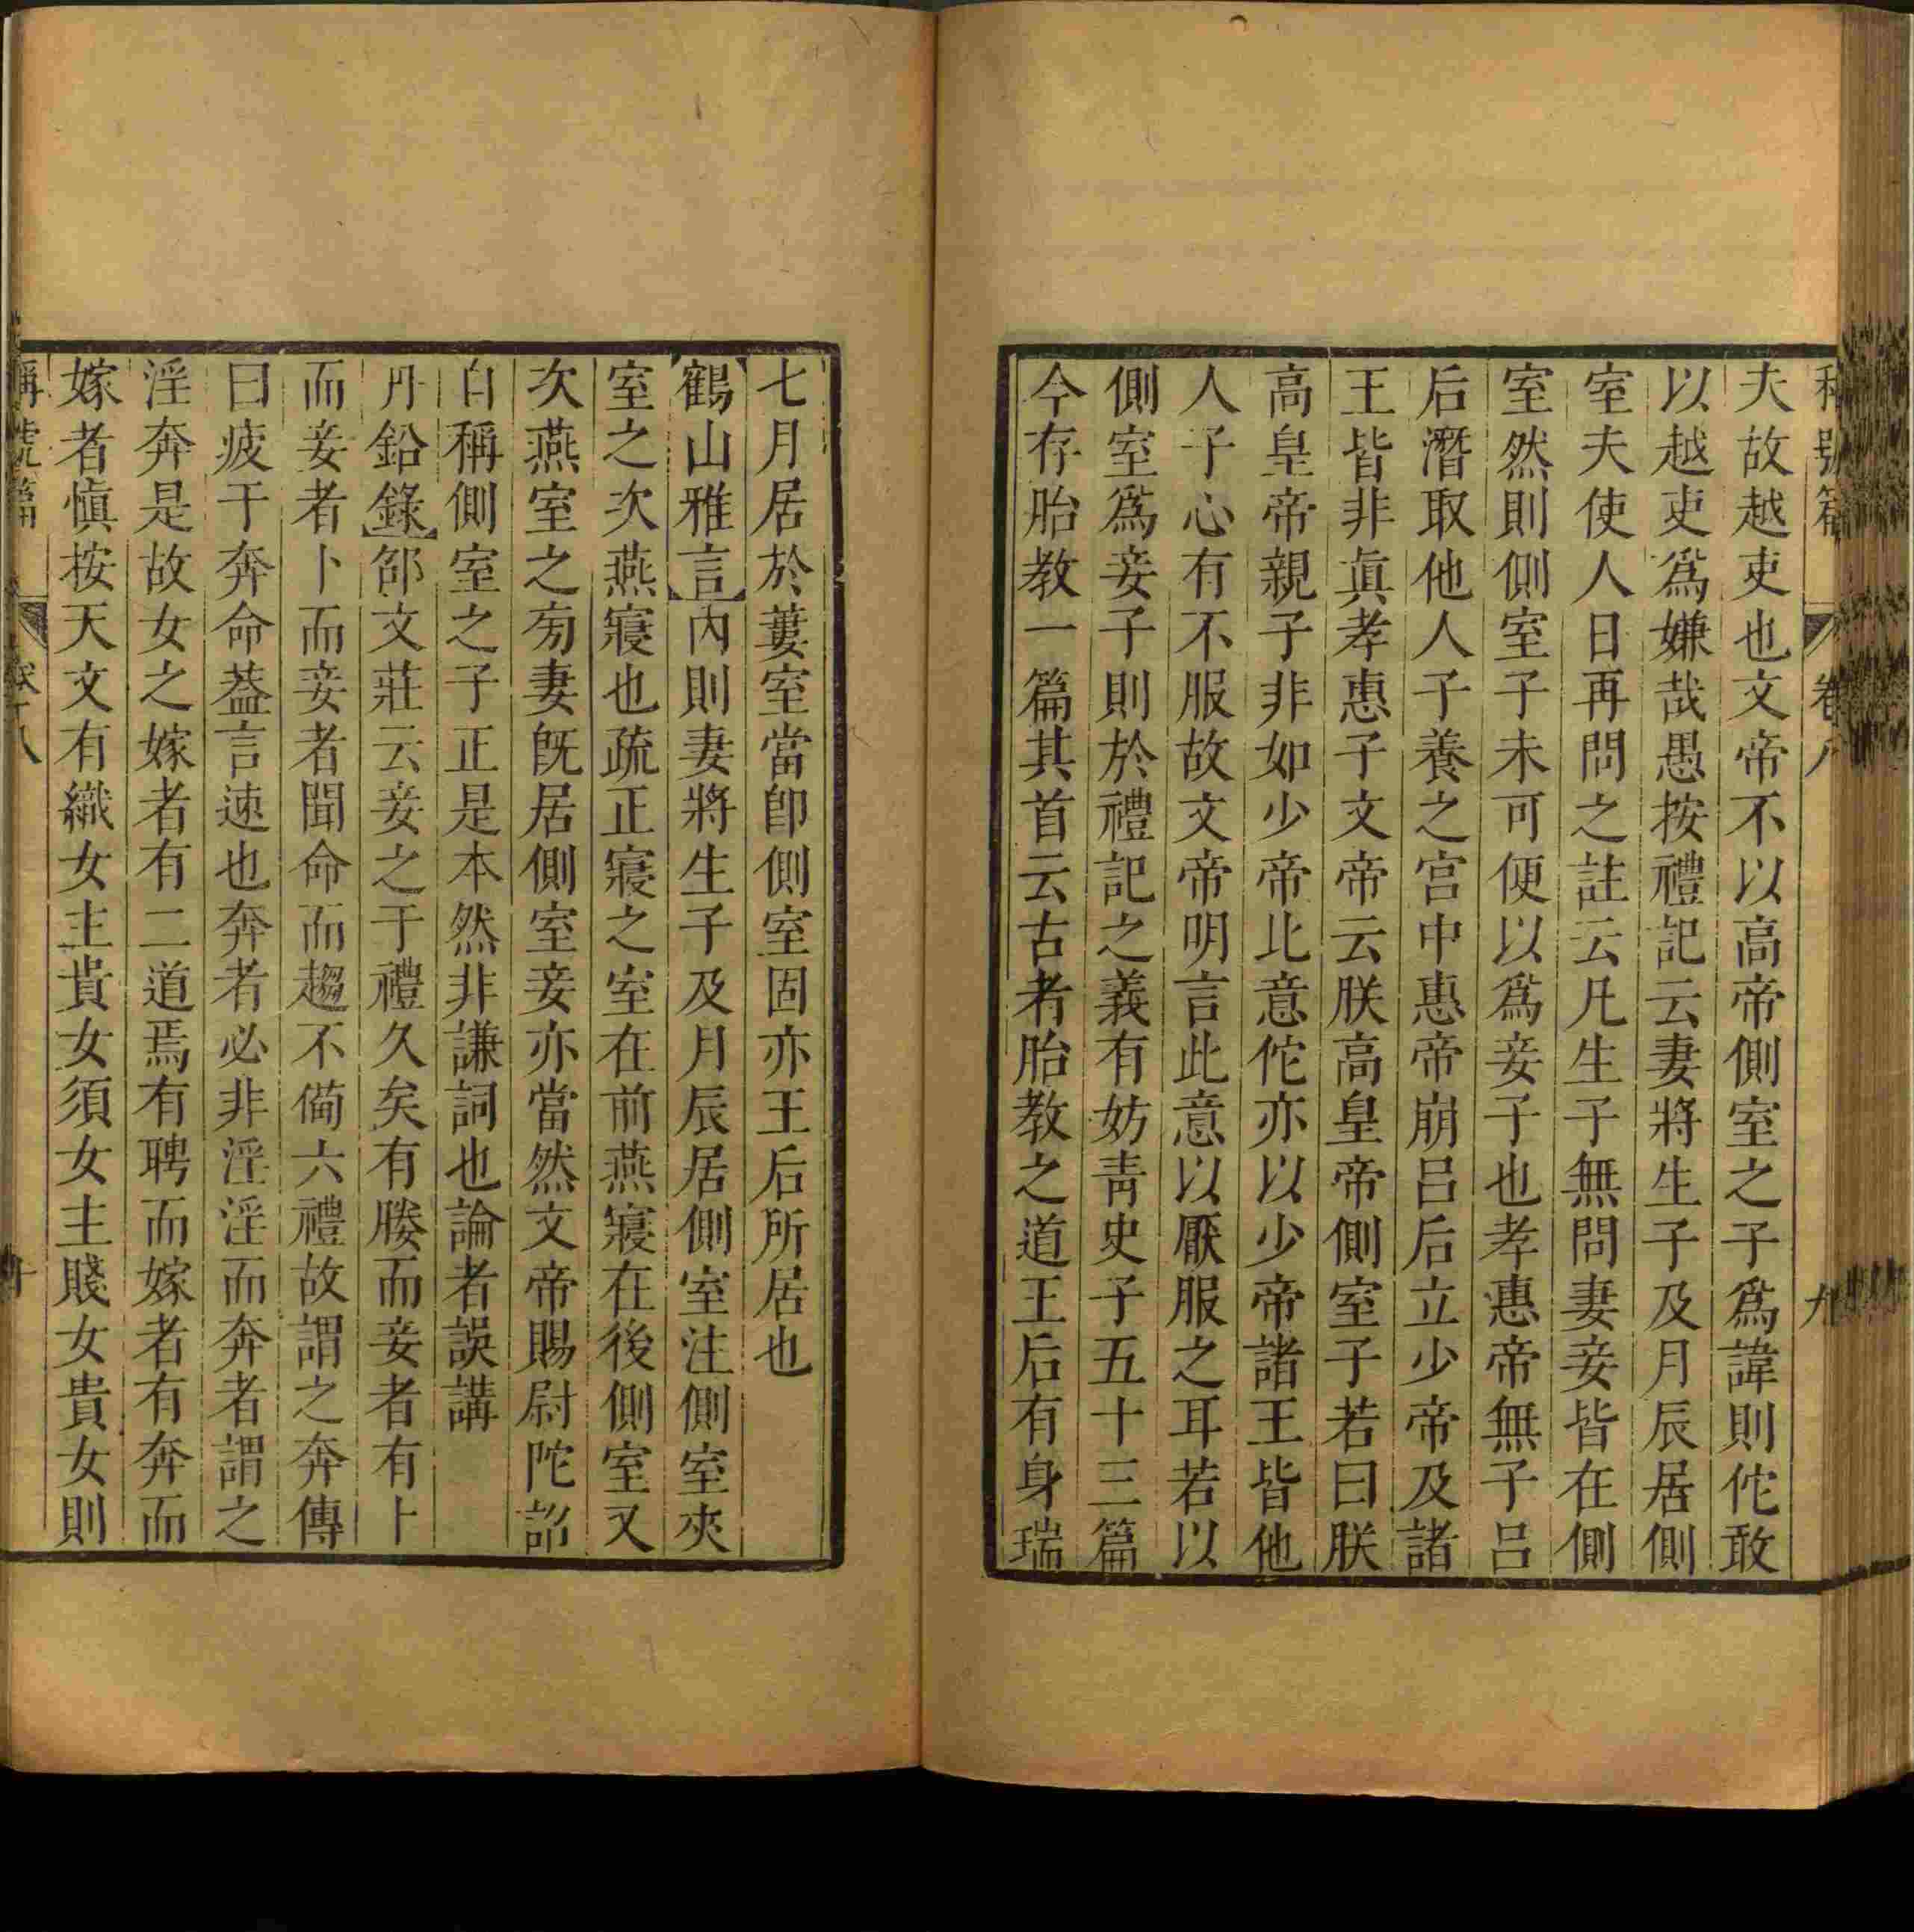 稱號篇 卷八 九
夫故越吏也文帝不以高帝側室之子爲諱則佗敢
以越吏爲嫌哉愚按禮記云妻將生子及月辰居側
室夫使人日再問之註云凡生子無問妻妾皆在側
室然則側室子未可便以爲妾子也孝惠帝無子吕
后潛取他人子養之宫中惠帝崩吕后立少帝及諸
王皆非真孝惠子文帝云朕高皇帝側室子若曰朕
高皇帝親子非如少帝比意佗亦以少帝諸王皆他
人子心有不服故文帝明言此意以厭服之耳若以
側室爲妾子則於禮記之義有妨靑史子五十三篇
今存胎教一篇其首云古者胎教之道王后有身瑞
七月居於蔞室當卽側室固亦王后所居也
鶴山雅言內則妻將生子及月辰居側室注側室夾
室之次次燕寢也疏正寢之室在前燕寢在後側室又
次燕室之旁妻旣居側室妾亦當然文帝賜尉陀詔
自稱側室之子正是本然非謙詞也論者誤講
丹鉛錄邵文莊云妾之于禮久矣有媵而妾者有卜
而妾者卜而妾者聞命而趨不備六禮故謂之奔傳
曰疲于奔命葢言速也奔者必非淫淫而奔者謂之
淫奔是故女之嫁者有二道焉有聘而嫁者有奔而
嫁者愼按天文有織女主貴女須女主賤女貴女則
稱號篇 卷八 十